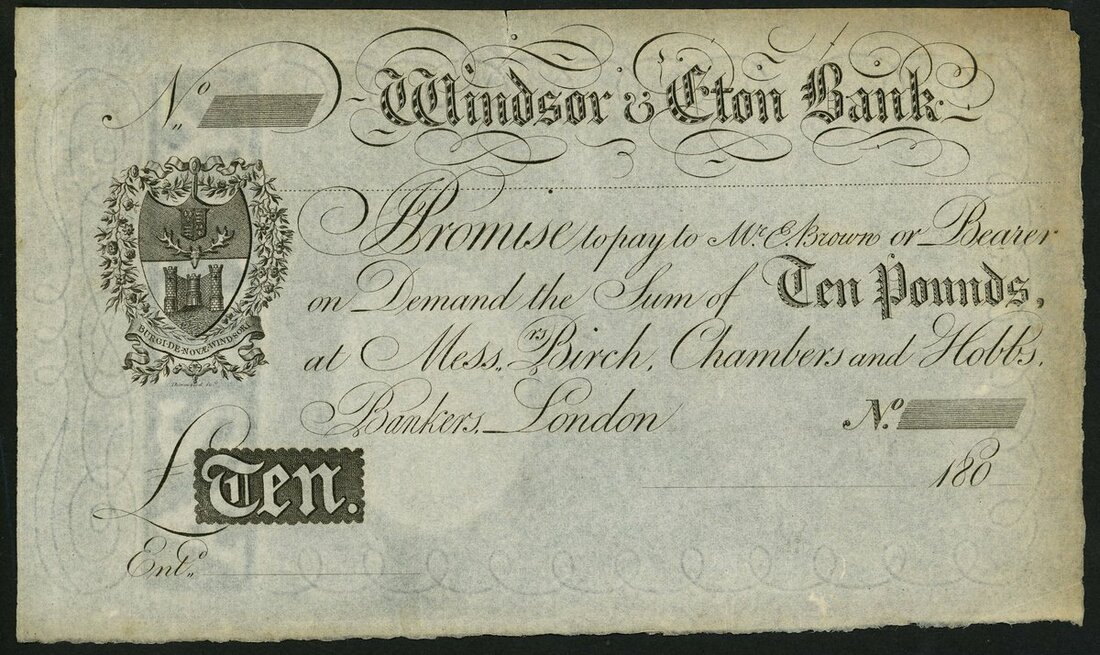 No Windsor & Eton Bank.
I Promise to pay to Mr. E. Brown or Bearer
on Demand the Sum of Ten Pounds,
at Messrs. Birch, Chambers and Hobbs,
Bankers, London No.
180
BURGI·DE·NOVÆ·WINDSORI
£ Ten.
Entd.